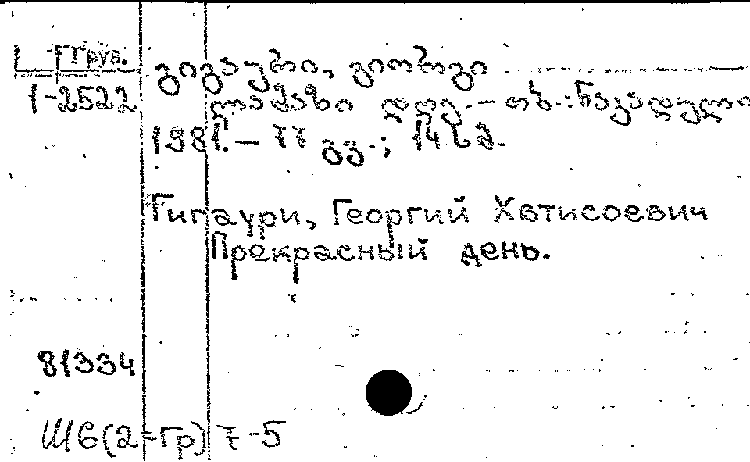 Груз.
გიგაური, გიორგი
1-2522 ლამაზი დღე. – თბ.: ნაკადული
1981. – 77 გვ.; 14 სმ.
Гигаури, Георгий Хвтисоевич
Прекрасный день.
81334
Ш6(2-Гр) 7-5